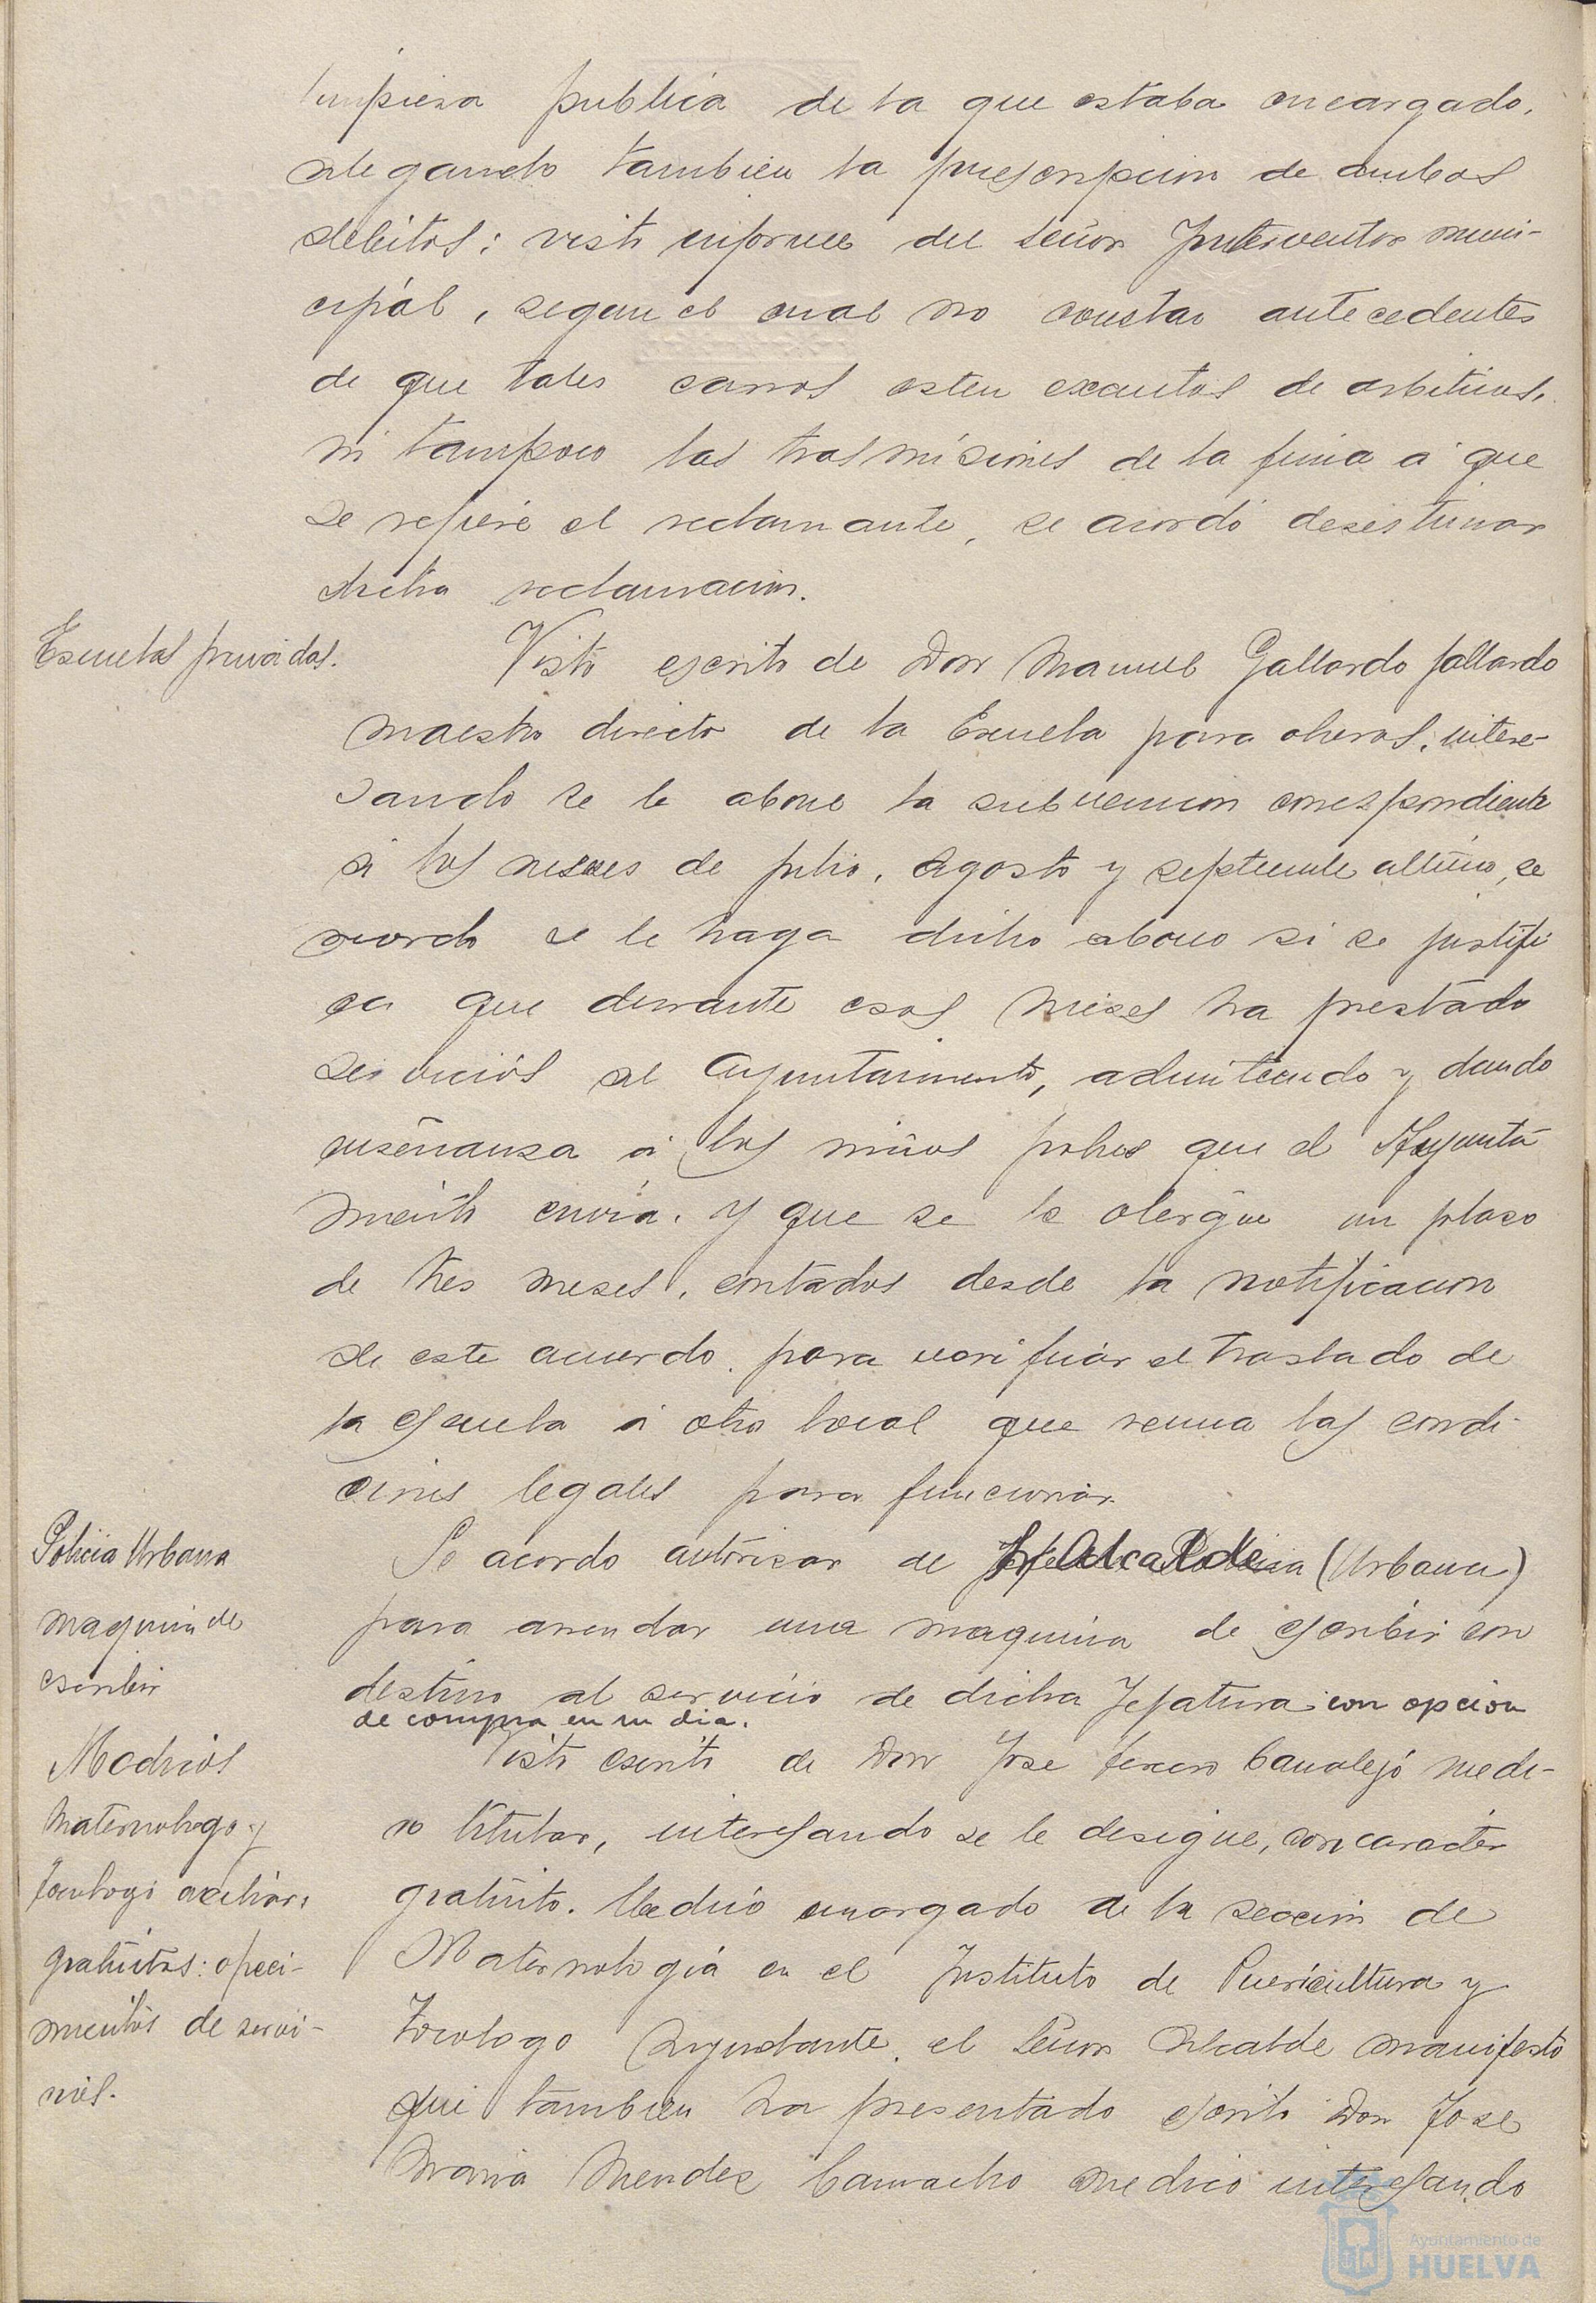 limpieza publica de la que estaba encargado,
alegando tambien la prescripcion de ambos
debitos: visto informe del Señor Interventor muni-
cipal, segun el cual no constan antecedentes
de que tales carros esten exentos de arbitrios,
ni tampoco las trasmisiones de la finca á que
se refiere el reclamante, se acordó desestimar
dicha reclamacion.
Escuelas privadas.
Visto escrito de Don Manuel Gallardo Gallardo
maestro director de la Escuela para obreros, intere-
sando se le abone la subvencion correspondiente
á los meses de julio, Agosto y septiembre ultimo, se
acordo se le haga dicho abono si se justifi
ca que durante esos meses ha prestado
servicios al Ayuntamiento, admitiendo y dando
enseñanza á los niños pobres que el Ayunta
miento envia, y que se le otorgue un plazo
de tres meses, contados desde la notificacion
de este acuerdo, para verificar el traslado de
la escuela á otro local que reuna las condi-
ciones legales para funcionar.
Policia Urbana
maquina de
escribir
Se acordo autorizar de Alcalde (Urbana)
para arrendar una maquina de escribir con
destino al servicio de dicha Jefatura con opcion
de compra en su dia.
Medicos
Maternologo y
Tocologo auxiliar,
gratuitos: ofreci-
mientos de servi-
cios.
Visto escrito de Don Jose Canalejo medi-
co titular, interesando se le designe, con caracter
gratuito, Medico encargado de la seccion de
Maternologia en el Instituto de Puericultura y
Tocologo Ayudante, el Señor Alcalde manifesto
que tambien ha presentado escrito Don Jose
Maria Mendez Camacho medico interesando
Ayuntamiento de
HUELVA